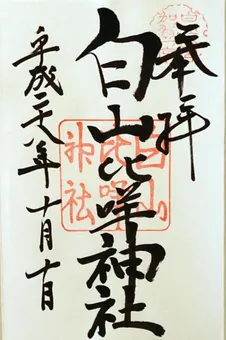 奉拝
白山比咩神社
白山比咩神社
平成二十八年十月十日